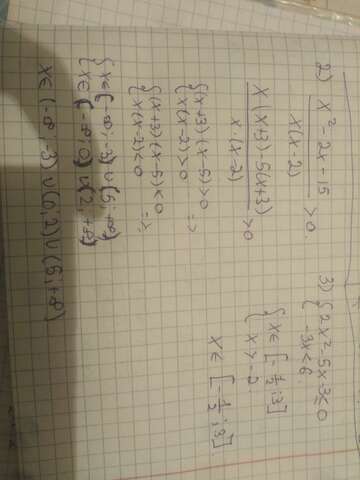 2) x² - 2x - 15 / x(x-2) > 0.
x(x+3) - 5(x+3) / x(x-2) > 0
{ (x+3)(x-5) > 0 =>
{ x(x-2) > 0
{ (x+3)(x-5) < 0 =>
{ x(x-2) < 0
{ x∈(-∞; -3) ∪ (5; +∞)
{ x∈(-∞; 0) ∪ (2; +∞)
x∈(-∞; -3) ∪ (0; 2) ∪ (5; +∞)
3) { 2x² - 5x - 3 ≤ 0
{ -3x < 6
{ x∈[-1/2; 3]
{ x > -2.
x∈[-1/2; 3]